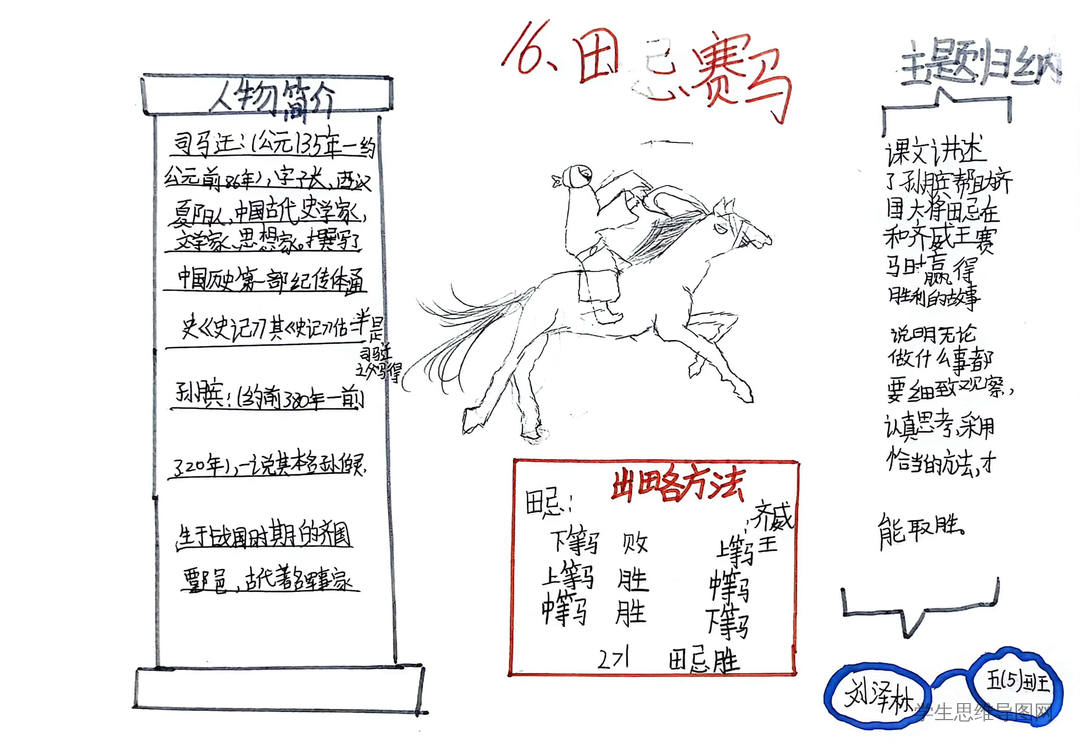 16、田忌赛马
人物简介
司马迁：(公元135年一约
公元前86年)，字子长，西汉
夏阳人，中国古代史学家，
文学家、思想家。撰写了
中国历史第一部纪传体通
史《史记》其《史记》估半是
司马迁
之父写得
孙膑：(约前380年一前
320年)，一说其本名孙伯灵
生于战国时期的齐国
鄄邑，古代著名军事家
出田各方法
田忌：
齐威
王
下等马 败 上等马
上等马 胜 中等马
中等马 胜 下等马
2>1 田忌胜
主题归纳
课文讲述
了孙膑帮助齐
国大将田忌在
和齐威王赛
马时赢得
胜利的故事
说明无论
做什么事都
要细致观察，
认真思考、采用
恰当的方法，才
能取胜。
刘泽林
五(5)班
学生思维导图网